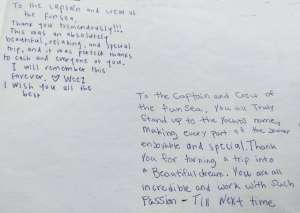 To the Captain and crew of
the Fun Sea,
Thank you tremendously!!!
This was an absolutely
beautiful, relaxing, and special
trip, and it was perfect thanks
to each and everyone of you.
I will remember this
forever. ♡
I wish you all the
best
To the Captain and Crew of
the Fun Sea, you all Truly
Stand up to the Yachts name,
Making every part of the
enjoyable and special. Thank
You for turning a trip into
a Beautiful dream. You are all
incredible and work with such
Passion - Till Next time